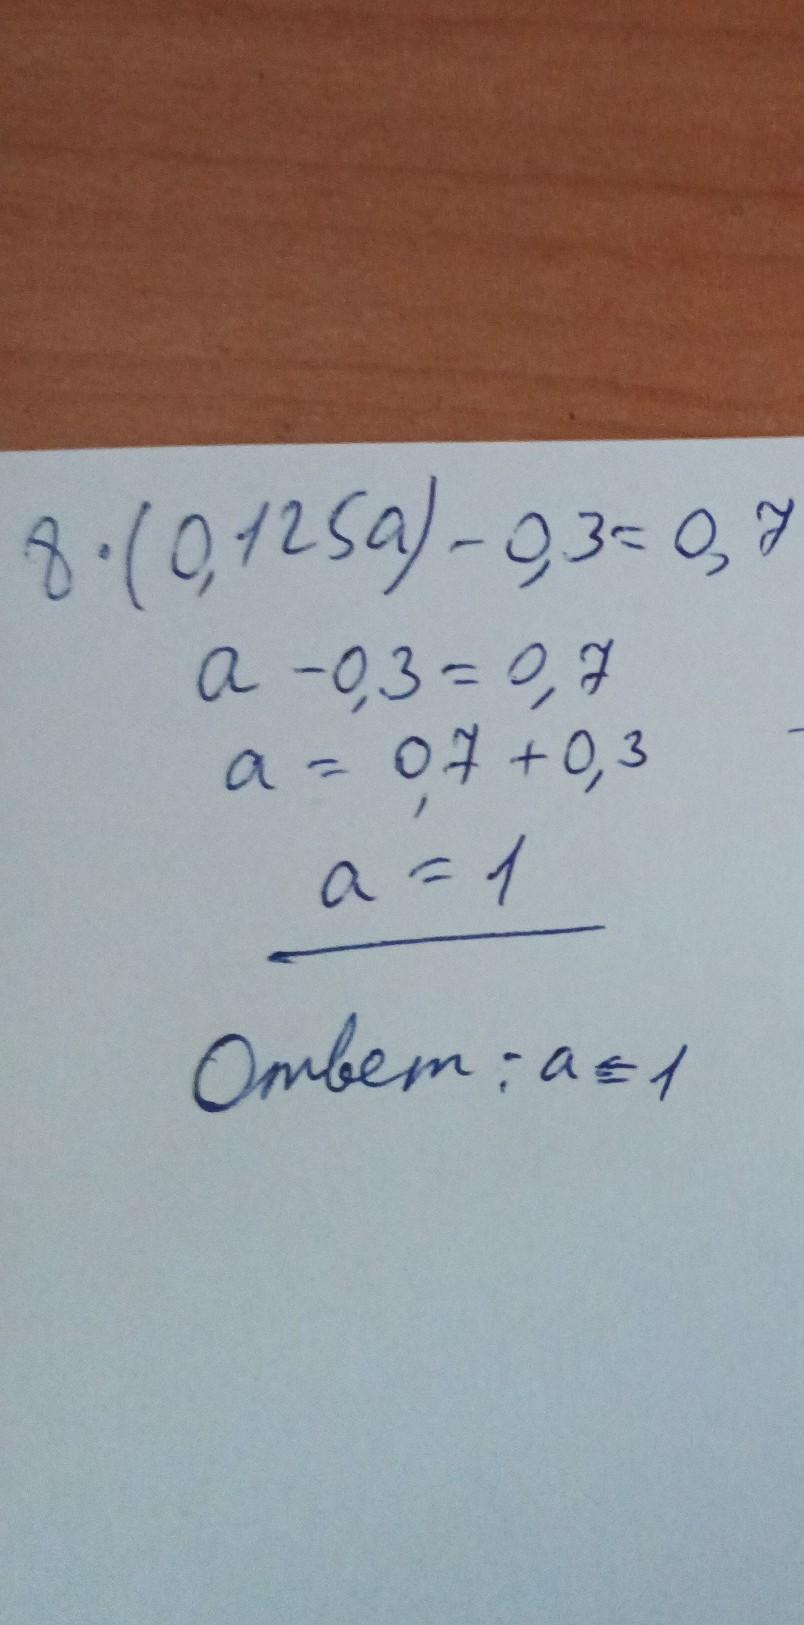 8·(0,125a)-0,3=0,7
a-0,3=0,7
a=0,7+0,3
a=1
Ответ: a=1